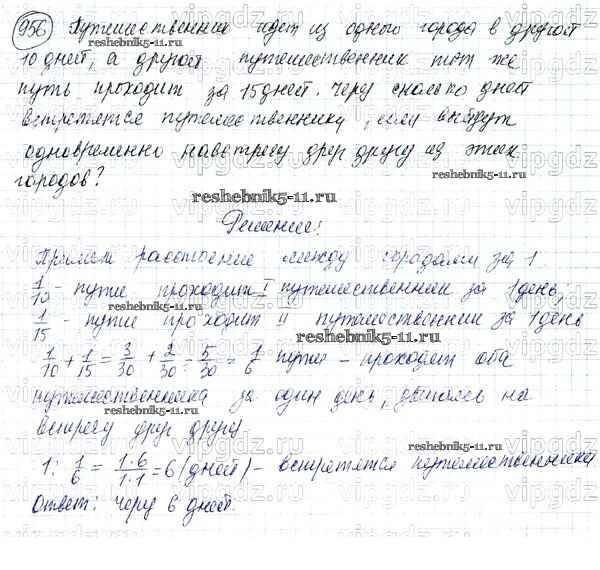 956 Путешественник идет из одного города в другой
10 дней, а другой путешественник тот же
путь проходит за 15 дней. Через сколько дней
встретятся путешественники, если выйдут
одновременно навстречу друг другу из этих
городов?
Решение:
Примем расстояние между городами за 1
1/10 - пути проходит I путешественник за 1 день;
1/15 - пути проходит II путешественник за 1 день
1/10 + 1/15 = 3/30 + 2/30 = 5/30 = 1/6 пути - проходят оба
путешественника за один день, двигаясь на
встречу друг другу.
1 : 1/6 = 1·6/1·1 = 6 (дней) - встретятся путешественники
Ответ: через 6 дней.
reshebnik5-11.ru
vipgdz.ru